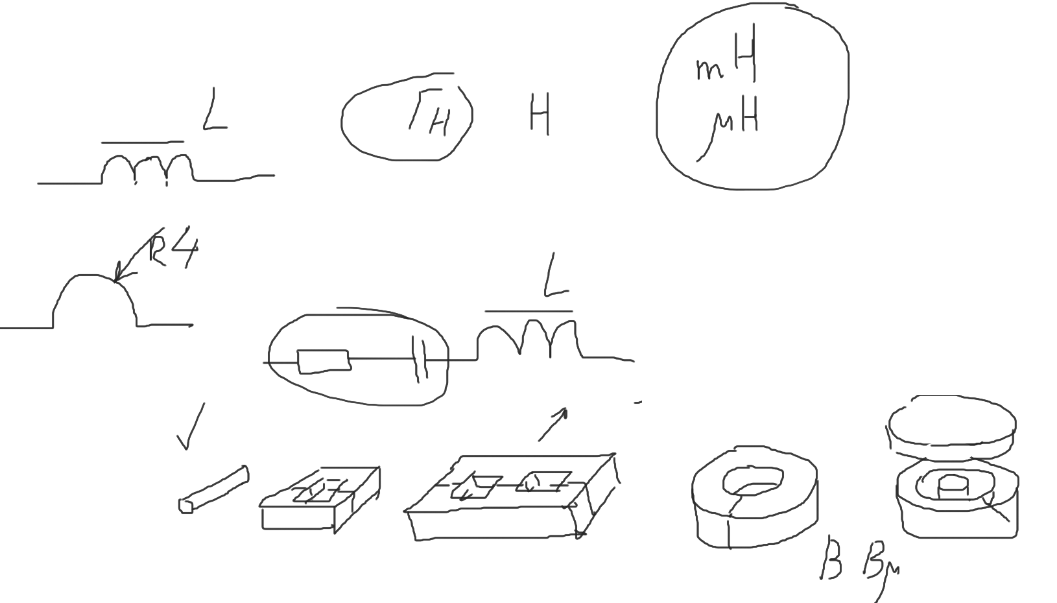 L
Гн
H
mH
μH
R4
L
B Bμ